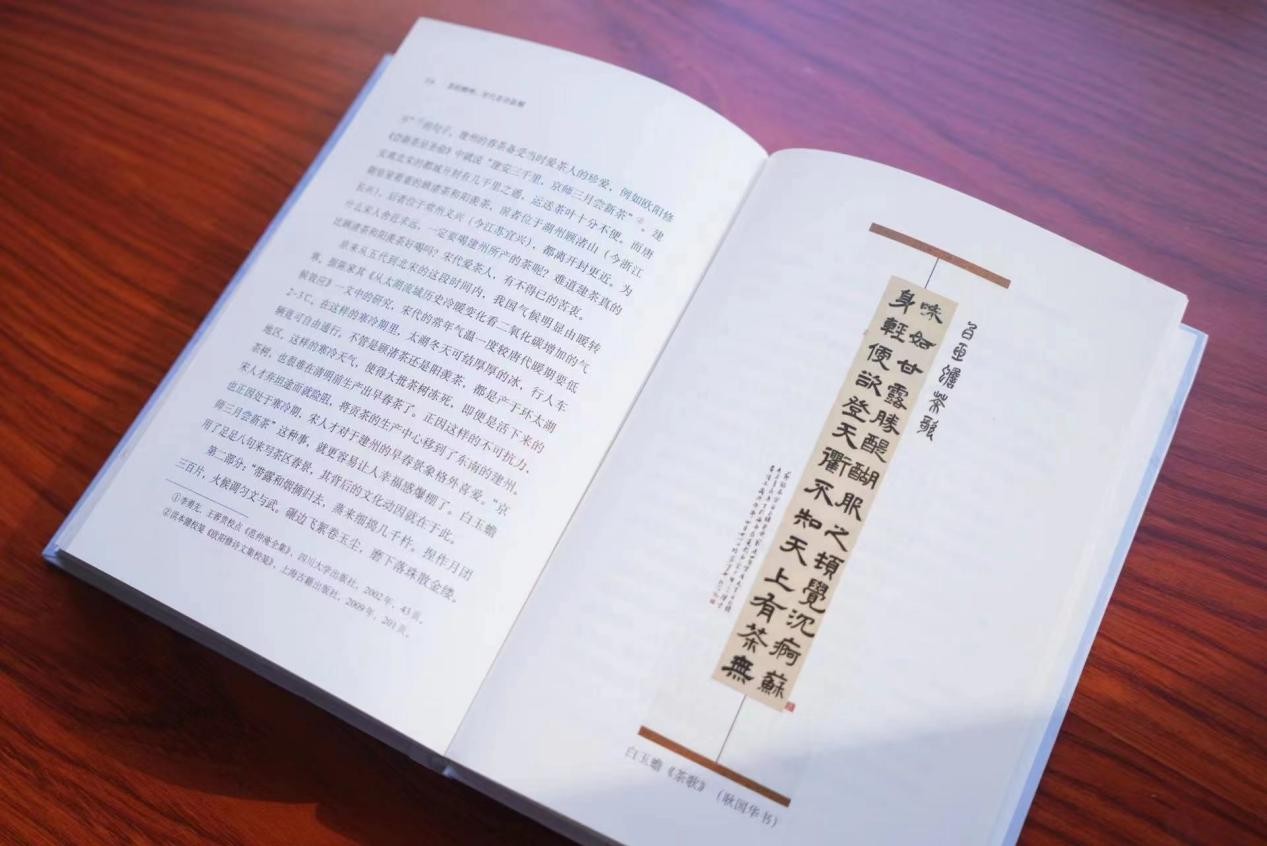 方”①的句子，建州的春茶备受当时爱茶人的珍爱，例如欧阳修
《尝新茶呈圣俞》中就说“建安三千里，京师三月尝新茶”②。建
安离北宋的都城开封有几千里之遥，运送茶叶十分不便。而唐
朝皇家看重的顾渚茶和阳羡茶，前者位于湖州顾渚山（今浙江
长兴），后者位于常州义兴（今江苏宜兴），都离开封更近。为
什么宋人舍近求远，一定要喝建州所产的茶呢？难道建茶真的
比顾渚茶和阳羡茶好喝吗？宋代爱茶人，有不得已的苦衷。
原来从五代到北宋的这段时间内，我国气候明显由暖转
寒。据陈家其《从太湖流域历史冷暖变化看二氧化碳增加的气
候效应》一文中的研究，宋代的常年气温一度较唐代暖期要低
2~3℃。在这样的寒冷期里，太湖冬天可结厚厚的冰，行人车
辆竟可自由通行，不管是顾渚茶还是阳羡茶，都是产于环太湖
地区，这样的寒冷天气，使得大批茶树冻死，即便是活下来的
茶树，也很难在清明前生产出早春茶了。正因这样的不可抗力，
宋人才弃坦途而就险阻，将贡茶的生产中心移到了东南的建州。
也正因处于寒冷期，宋人才对于建州的早春景象格外喜爱。“京
师三月尝新茶”这种事，就更容易让人幸福感爆棚了。白玉蟾
用了足足八句来写茶区春景，其背后的文化动因就在于此。
第二部分：“带露和烟摘归去，蒸来细捣几千杵。捏作月团
三百片，火候调匀文与武。碾边飞絮卷玉尘，磨下落珠散金缕。
①李勇先、王蓉贵校点《范仲淹全集》，四川大学出版社，2002年，43页。
②洪本健校笺《欧阳修诗文集校笺》，上海古籍出版社，2009年，201页。
白玉蟾茶歌
味如甘露胜醍醐服之頓覺沉痾蘇
身輕便欲登天衢不知天上有茶無
白玉蟾《茶歌》（耿国华书）